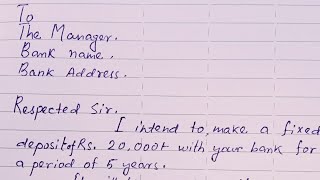 To
The Manager.
Bank name.
Bank Address.
Respected Sir.
I intend to, make a fixed
deposit of Rs. 20,000/- with your bank for
a period of 5 years.